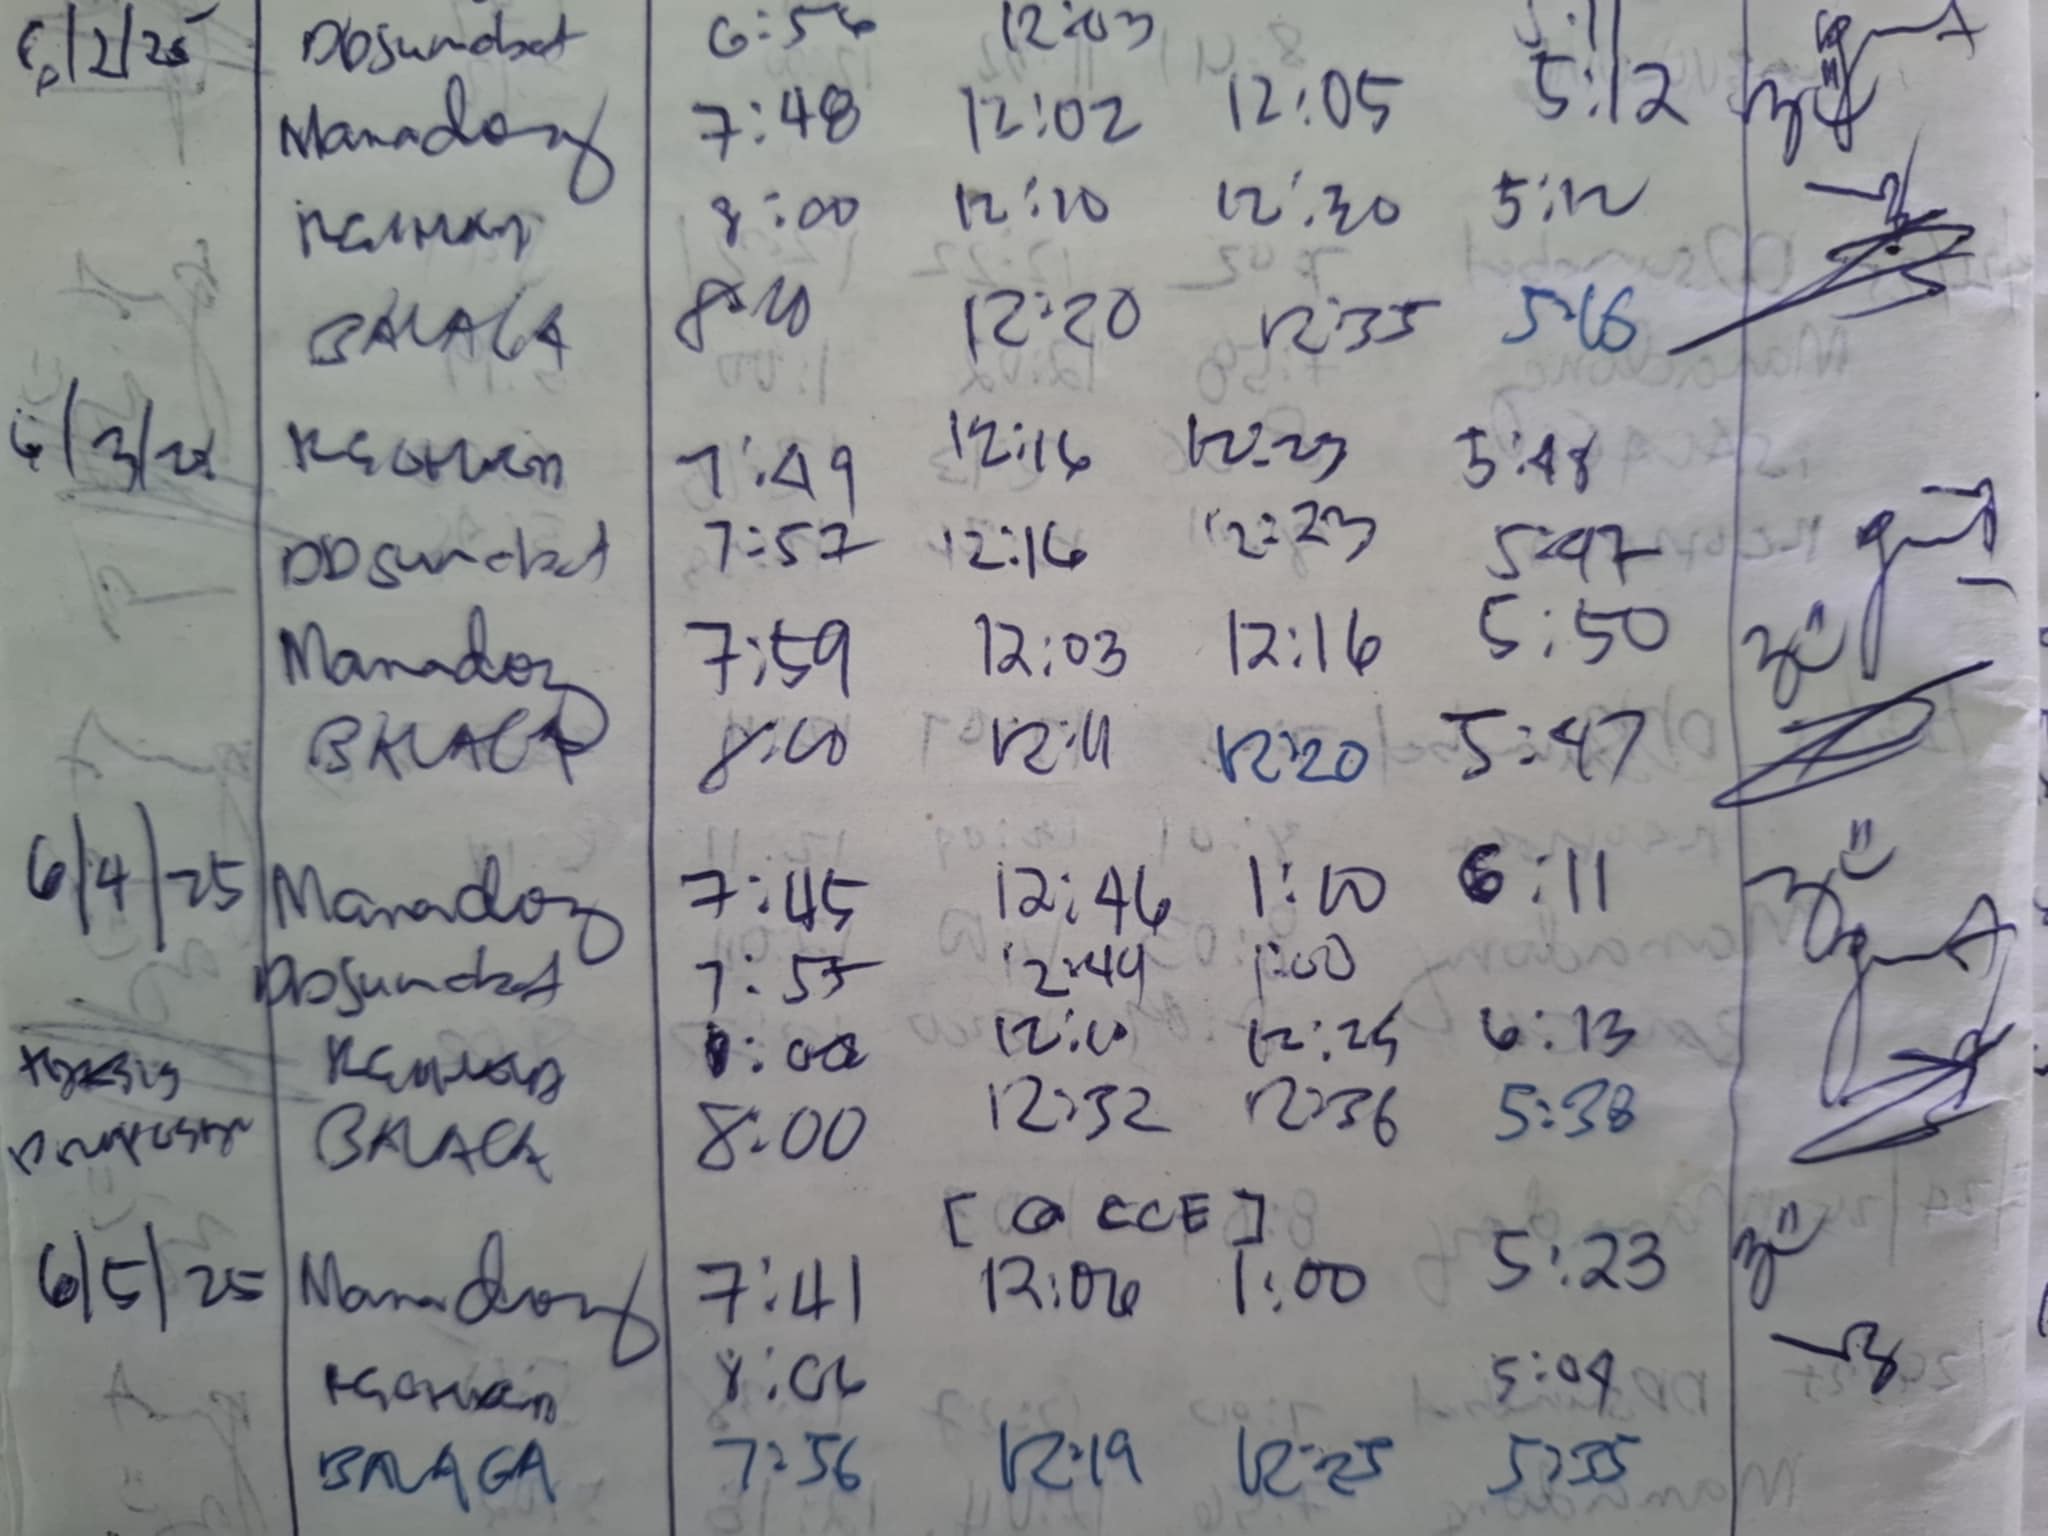 6/2/25 DDsumabat 6:56 12:03 5:11
Manadong 7:48 12:02 12:05 5:12
8:00 12:10 12:30 5:12
BALAGA 8:10 12:20 12:35 5:16
6/3/25 7:49 12:16 12:23 5:48
DDsumabat 7:57 12:16 12:23 5:47
Manadong 7:59 12:03 12:16 5:50
BALAGA 8:00 12:11 12:20 5:47
6/4/25 Manadong 7:45 12:46 1:00 6:11
DDsumabat 7:55 12:49 1:00
8:00 12:10 12:25 6:13
BALAGA 8:00 12:32 12:36 5:38
[@ CCE]
6/5/25 Manadong 7:41 12:06 1:00 5:23
8:06 5:09
BALAGA 7:56 12:19 12:25 5:35